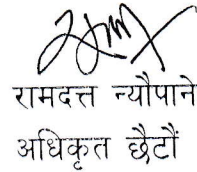 रामदत्त न्यौपाने
अधिकृत छैटौं